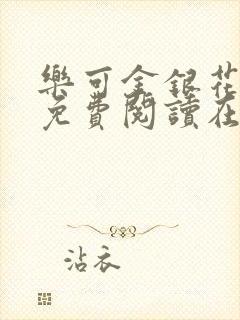 樂可金銀花
免費閱讀在
沾衣